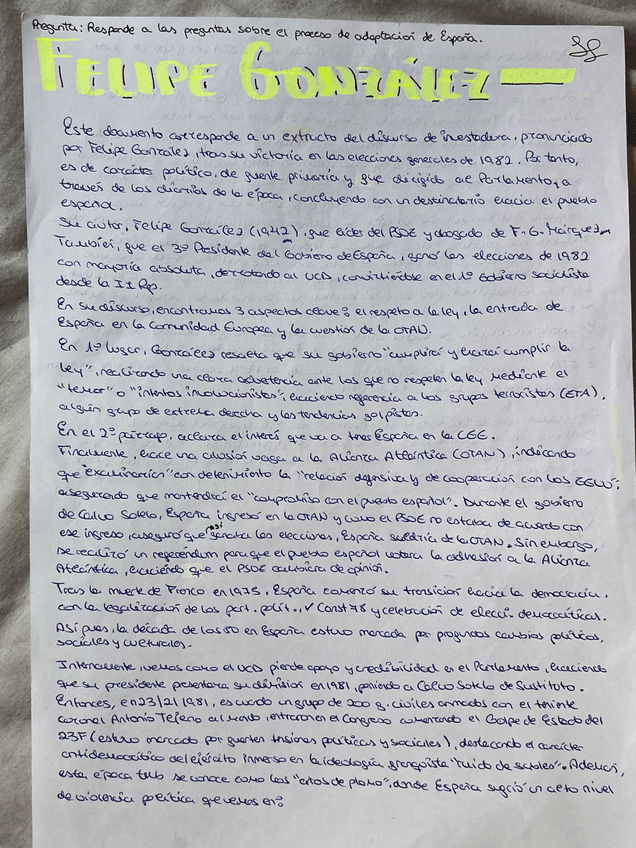 Pregunta: Responde a las preguntas sobre el proceso de adaptación de España.
FELIPE GONZÁLEZ
Este documento corresponde a un extracto del discurso de investadura, pronunciado
por Felipe González, tras su victoria en las elecciones generales de 1982. Por tanto,
es de carácter político, de fuente primaria y fue dirigido al Parlamento, a
través de los diarios de la época, concluyendo con un destinatario hacia el pueblo
español.
Su autor, Felipe González (1942), fue líder del PSOE y abogado de F. G. Márquez.
También, fue el 3º Presidente del Gobierno de España, ganó las elecciones de 1982
con mayoría absoluta, derrotando al UCD, convirtiéndose en el 1º Gobierno socialista
desde la II Rep.
En su discurso, encontramos 3 aspectos clave: el respeto a la ley, la entrada de
España en la Comunidad Europea y la cuestión de la OTAN.
En 1º lugar, González resalta que su gobierno "cumplirá y hará cumplir la
ley", realizando una clara advertencia ante los que no respeten la ley mediante el
"terror" o "intentos involucionistas", haciendo referencia a los grupos terroristas (ETA),
algún grupo de extrema derecha y las tendencias golpistas.
En el 2º párrafo, aclara el interés que va a tener España en la CEE.
Finalmente, hace una alusión vaga a la Alianza Atlántica (OTAN), indicando
que "examinarían" con detenimiento la "relación defensiva y de cooperación con los EEUU",
asegurando que mantendrá el "compromiso con el pueblo español". Durante el gobierno
de Calvo Sotelo, España ingresó en la OTAN y como el PSOE no estaba de acuerdo con
ese ingreso, aseguró que si ganaba las elecciones, España saldría de la OTAN. Sin embargo,
se realizó un referéndum para que el pueblo español votara la adhesión a la Alianza
Atlántica, haciendo que el PSOE cambiara de opinión.
Tras la muerte de Franco en 1975, España comenzó su transición hacia la democracia,
con la legalización de los part. polít., Const 78 y celebración de elecci. democráticas.
Así pues, la década de los 80 en España estuvo marcada por profundos cambios políticos,
sociales y culturales.
Internamente, vemos como el UCD pierde apoyo y credibilidad en el Parlamento, haciendo
que su presidente presentara su dimisión en 1981, poniendo a Calvo Sotelo de sustituto.
Entonces, en 23/2/1981, es cuando un grupo de 200 g. civiles armados con el teniente
coronel Antonio Tejero al mando, entraron en el Congreso comenzando el Golpe de Estado del
23F (estuvo marcado por fuertes tensiones políticas y sociales), destacando el carácter
antidemocrático del ejército inmerso en la ideología franquista "ruido de sables". Además,
esta época tmb se conoce como los "años de plomo", donde España sufrió un alto nivel
de violencia política que vemos en: